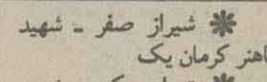 ❋ شیراز صفر ـ شهید
اهنر کرمان یک